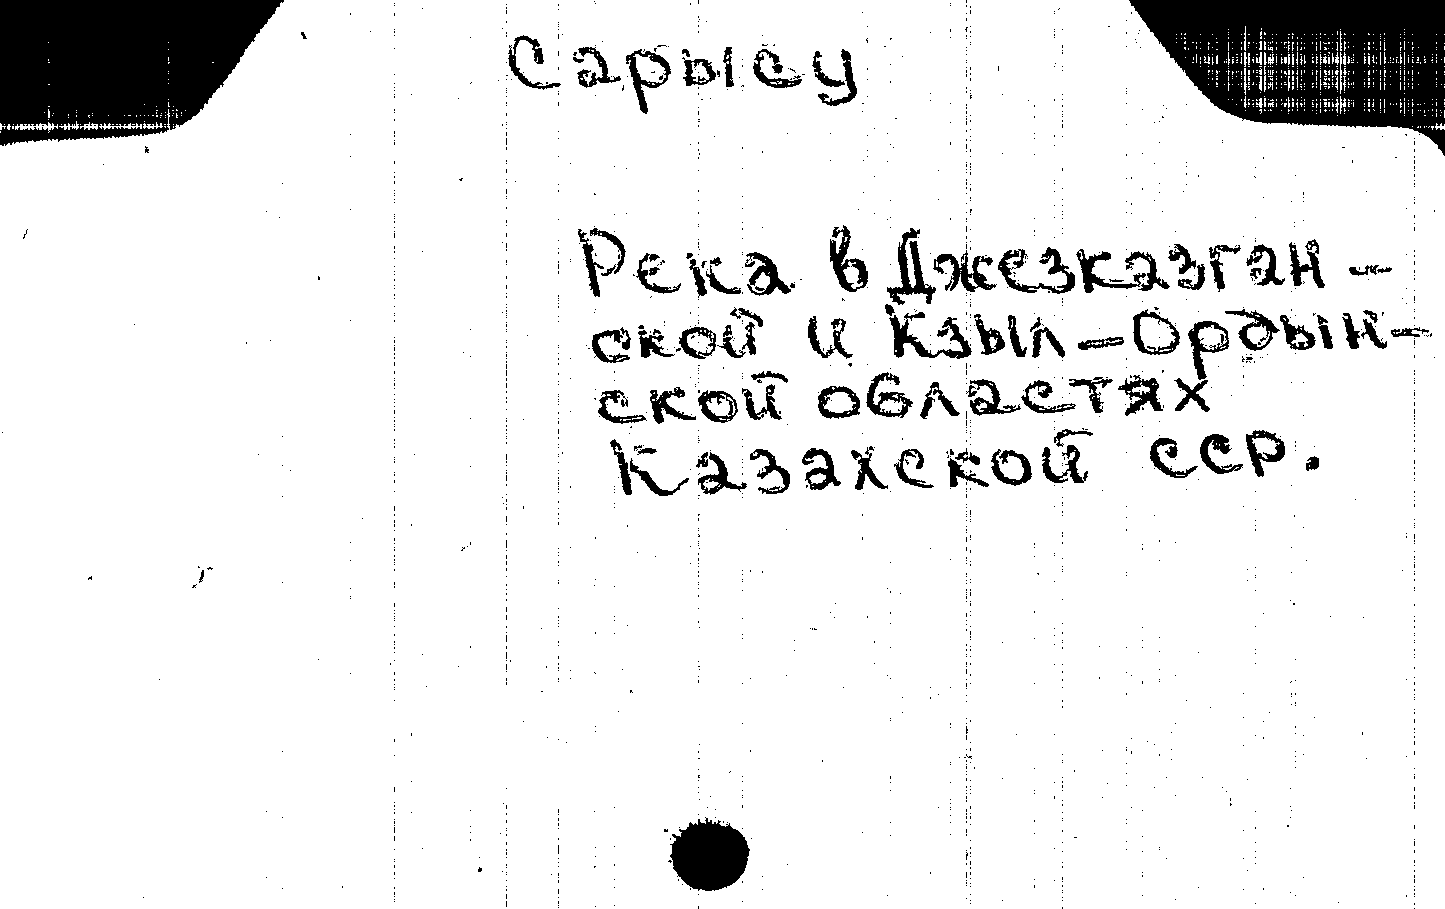 Сарысу
Река в Джезказган-
ской и Кзыл-Ордын-
ской областях
Казахской ССР.